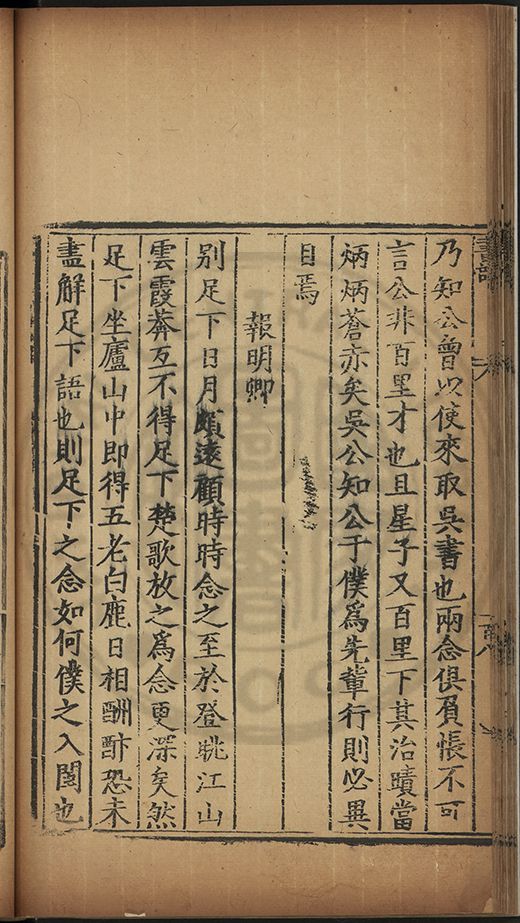 乃知公曾以使來取吳書也兩念俱負悵不可
言公非百里才也且星子又百里下其治蹟當
炳炳蒼赤矣吳公知公于僕爲先輩行則必異
目焉
報明卿
別足下日月頗遠顧時時念之至於登眺江山
雲霞莽互不得足下楚歌放之爲念更深矣然
足下坐廬山中即得五老白鹿日相酬酢恐未
盡解足下語也則足下之念如何僕之入閩也